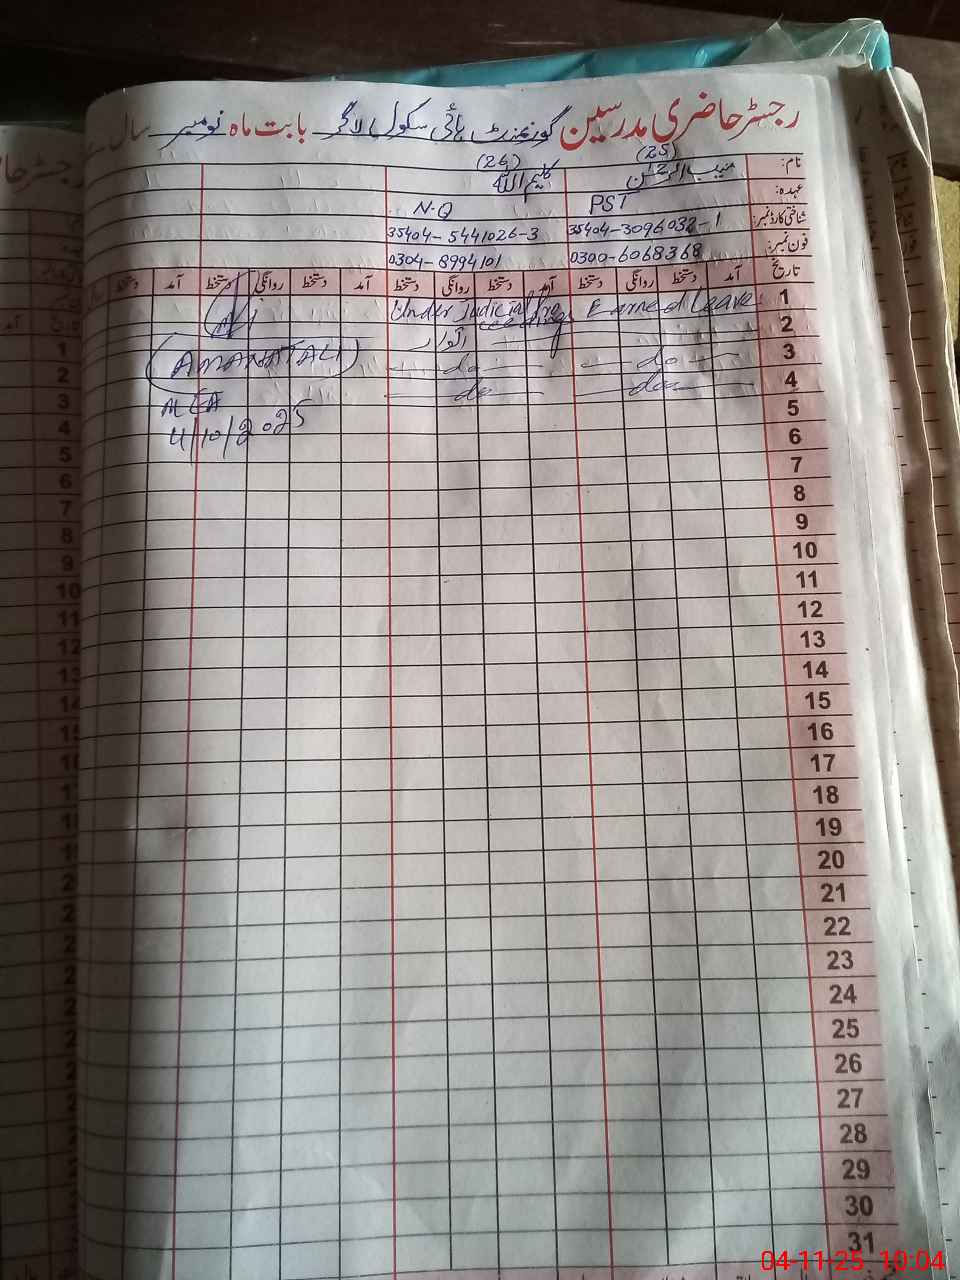 رجسٹر حاضری مدرسین گورنمنٹ ہائی سکول لاگر بابت ماہ نومبر سال
(25) (26)
نام: منیب الرحمٰن کلیم اللہ
عہدہ: PST N.Q
شناختی کارڈ نمبر: 35404-3096032-1 35404-5441026-3
فون نمبر: 0300-6068368 0304-8994101
تاریخ آمد دستخط روانگی دستخط آمد دستخط روانگی دستخط آمد دستخط روانگی دستخط آمد دستخط
1 Earned Leave Under Judicial Proceedings
2 اتوار
3 do do
4 do do
(AMANAT ALI)
MEA
4/10/2025
5
6
7
8
9
10
11
12
13
14
15
16
17
18
19
20
21
22
23
24
25
26
27
28
29
30
31
04-11-25 10:04